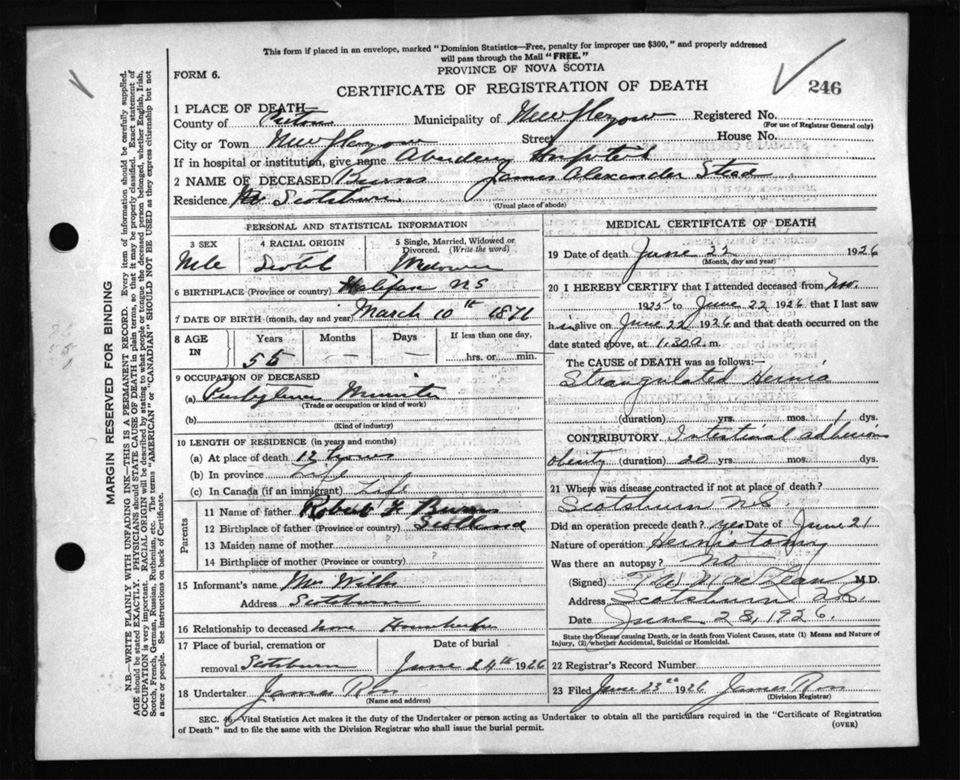 This form if placed in an envelope, marked "Dominion Statistics—Free, penalty for improper use $300," and properly addressed
will pass through the Mail "FREE."
PROVINCE OF NOVA SCOTIA
FORM 6.
CERTIFICATE OF REGISTRATION OF DEATH
246
1 PLACE OF DEATH
County of Pictou Municipality of New Glasgow Registered No.
(For use of Registrar General only)
City or Town New Glasgow Street House No.
If in hospital or institution, give name Aberdeen Hospital
2 NAME OF DECEASED Burns James Alexander Stead
Residence Scotsburn (Usual place of abode)
PERSONAL AND STATISTICAL INFORMATION
3 SEX 4 RACIAL ORIGIN 5 Single, Married, Widowed or Divorced. (Write the word)
Male Scotch Widower
6 BIRTHPLACE (Province or country) Halifax NS
7 DATE OF BIRTH (month, day and year) March 10th 1871
8 AGE IN Years Months Days If less than one day,
55 hrs. or min.
9 OCCUPATION OF DECEASED
(a) Presbyterian Minister
(Trade or occupation or kind of work)
(b)
(Kind of industry)
10 LENGTH OF RESIDENCE (in years and months)
(a) At place of death 12 hours
(b) In province Life
(c) In Canada (if an immigrant) Life
Parents
11 Name of father Robert F Burns
12 Birthplace of father (Province or country) Scotland
13 Maiden name of mother ?
14 Birthplace of mother (Province or country) ?
15 Informant's name Wilk
Address Scotsburn
16 Relationship to deceased none
17 Place of burial, cremation or Date of burial
removal Scotsburn June 24th 1926
18 Undertaker James Ross
(Name and address)
MEDICAL CERTIFICATE OF DEATH
19 Date of death June 22 1926
(Month, day and year)
20 I HEREBY CERTIFY that I attended deceased from Nov.
1925 to June 22 1926 that I last saw
h im alive on June 22 1926 and that death occurred on
date stated above, at 1.30 a. m.
The CAUSE of DEATH was as follows:
Strangulated Hernia
(duration) yrs. mos. dys.
CONTRIBUTORY Intestinal adhesion
obesity (duration) 20 yrs. mos. dys.
21 Where was disease contracted if not at place of death?
Scotsburn N.S.
Did an operation precede death? yes Date of June 21
Nature of operation Herniotomy
Was there an autopsy? No
(Signed) MacLean M.D.
Address Scotsburn N.S.
Date June 28, 1926.
State the Disease causing Death, or in death from Violent Causes, state (1) Means and Nature of
Injury, (2) whether Accidental, Suicidal or Homicidal.
22 Registrar's Record Number
23 Filed June 23rd 1926 James Ross
(Division Registrar)
SEC. 46—Vital Statistics Act makes it the duty of the Undertaker or person acting as Undertaker to obtain all the particulars required in the "Certificate of Registration
of Death" and to file the same with the Division Registrar who shall issue the burial permit.
(OVER)
MARGIN RESERVED FOR BINDING
N.B.—WRITE PLAINLY WITH UNFADING INK—THIS IS A PERMANENT RECORD. Every item of information should be carefully supplied.
AGE should be stated EXACTLY. PHYSICIANS should STATE CAUSE OF DEATH in plain terms, so that it may be properly classified. Exact statement of
OCCUPATION is very important. RACIAL ORIGIN will be described by stating to what people or tongue the deceased person belonged, whether English, Irish,
Scotch, French, German, Russian, Ruthenian, etc. The terms "AMERICAN" or "CANADIAN" SHOULD NOT BE USED as they express citizenship but not
a race or people. See instructions on back of Certificate.